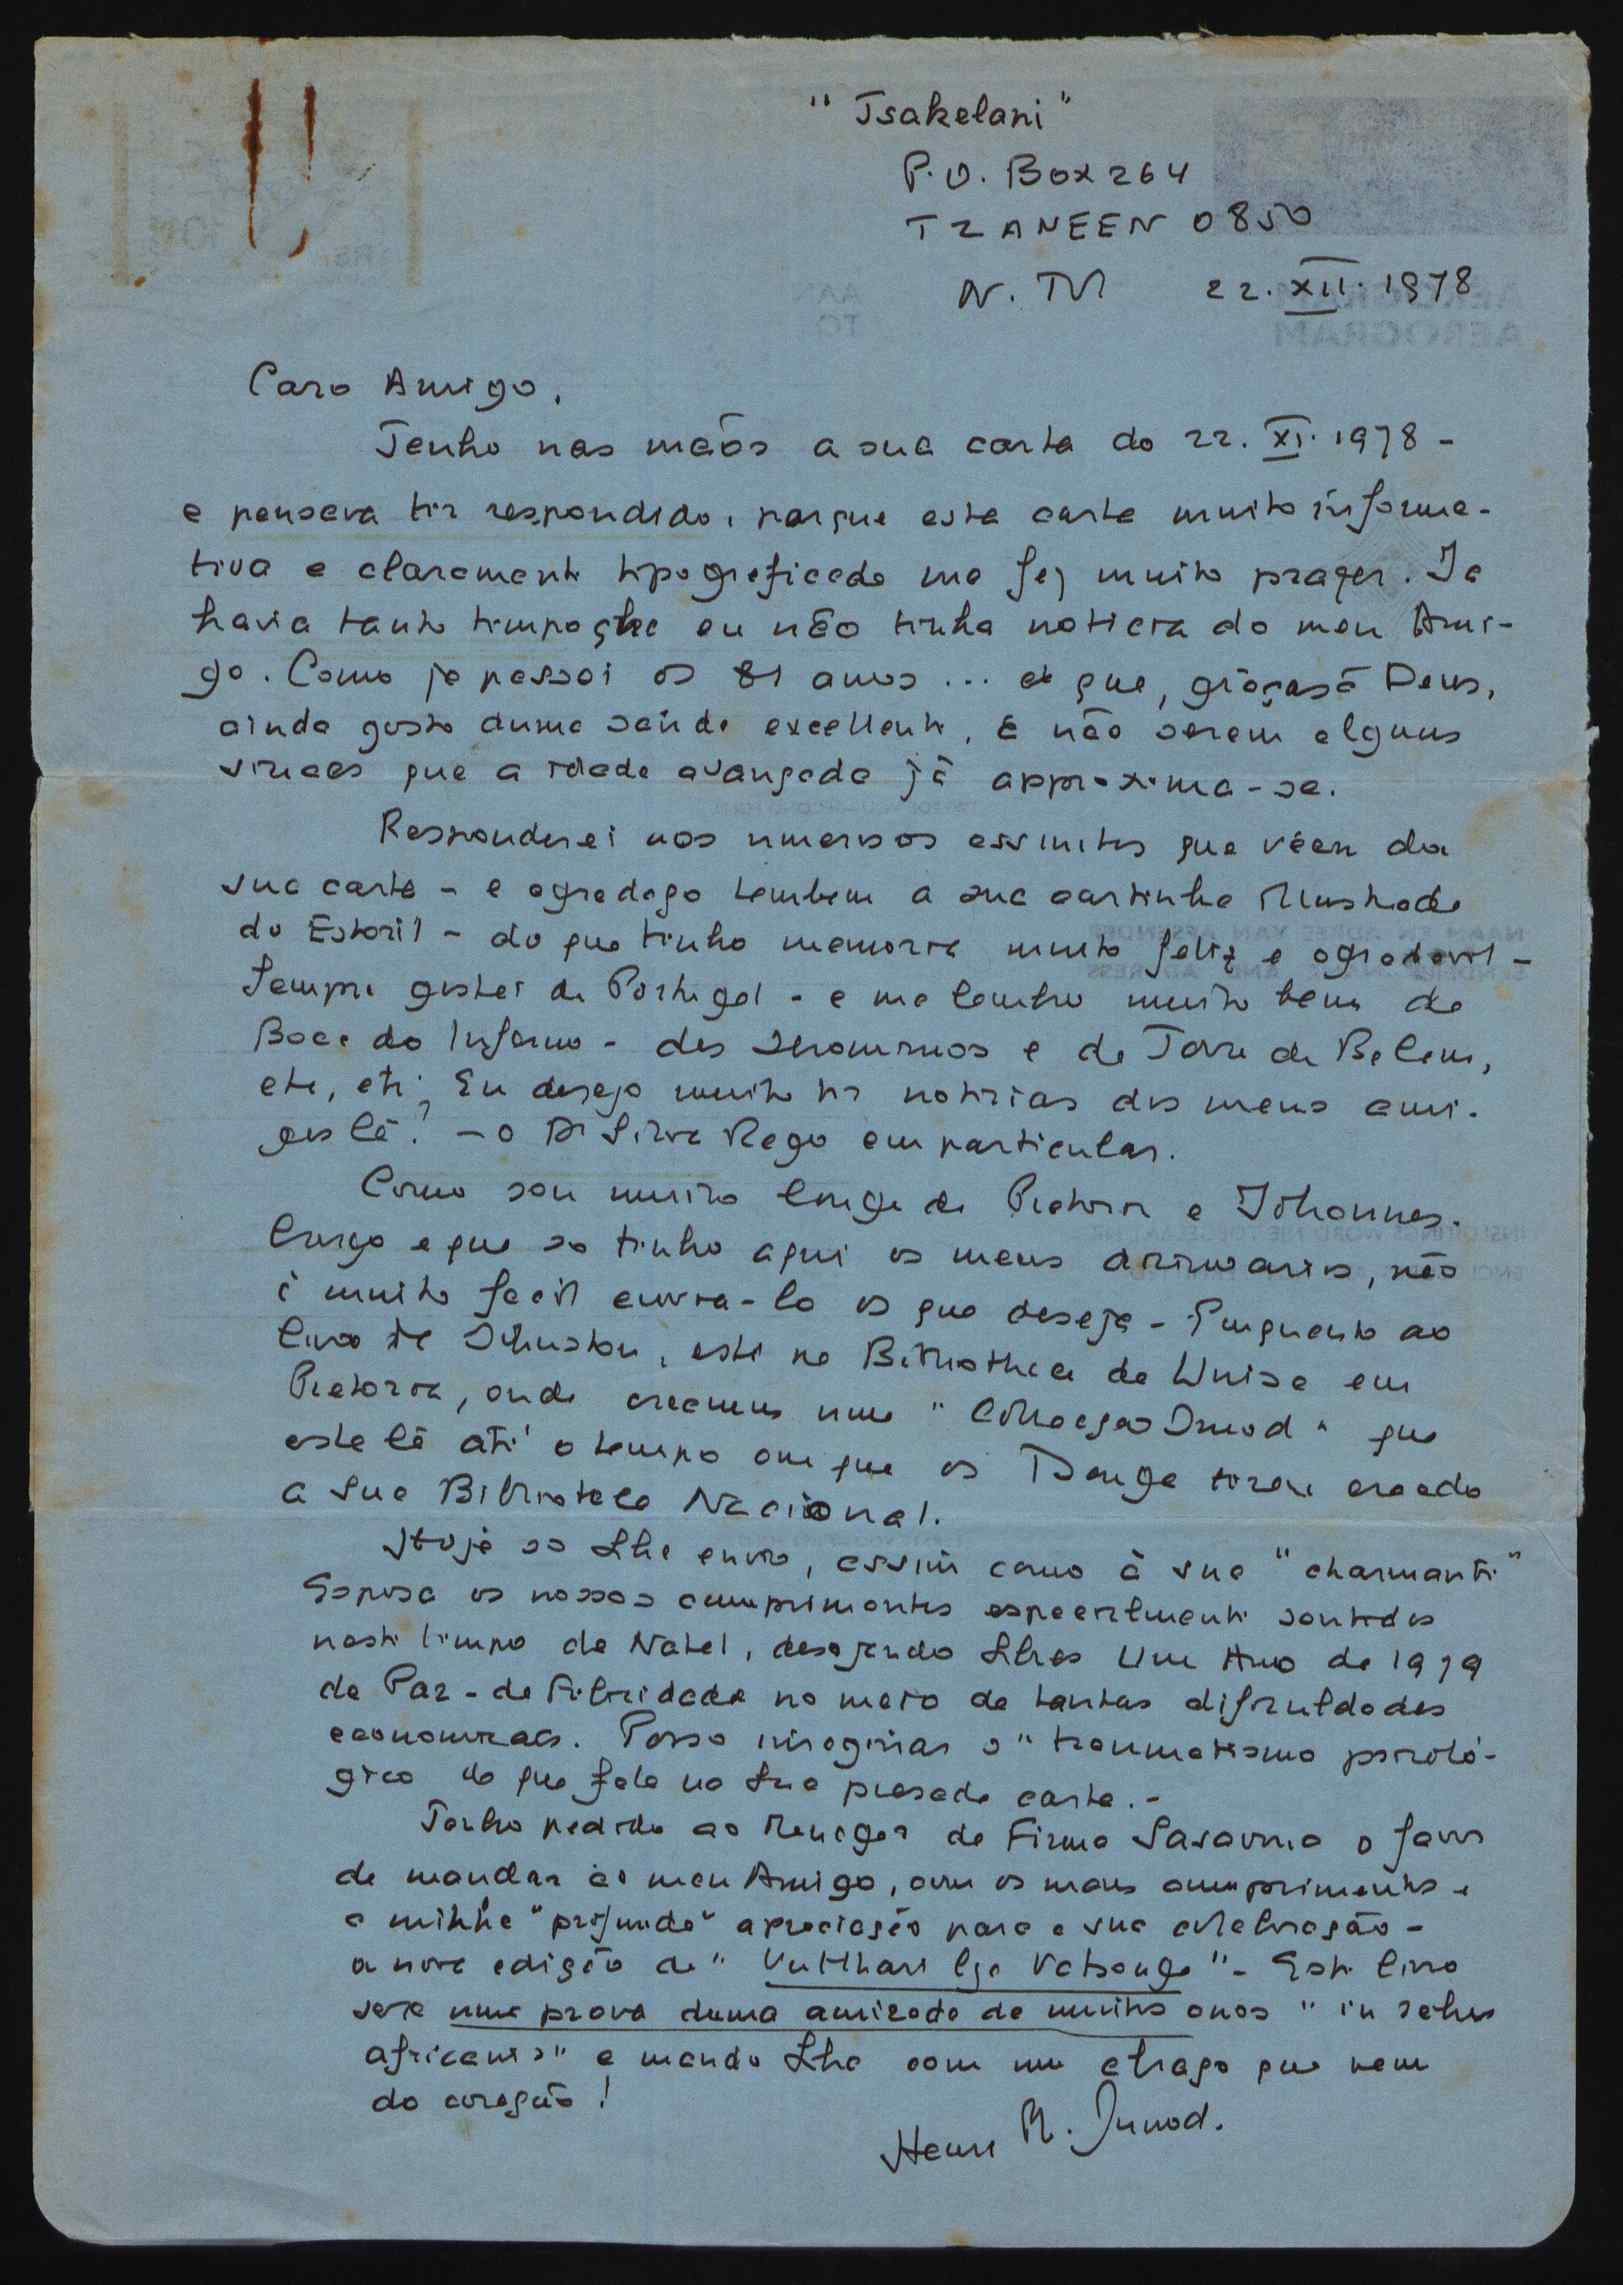 "Tsakelani"
P.O. Box 264
TZANEEN 0850
N. TVl 22. XII. 1978
Caro Amigo,
Tenho nas mãos a sua carta do 22. XI. 1978 -
e pensava ter respondido, porque esta carta muito informa-
tiva e claramente tipograficada me fez muito prazer. Ja
havia tanto tempo que eu não tinha noticia do meu Ami-
go. Como ja passei os 81 anos ... e que, graças á Deus,
ainda gosto duma saúde excellente, a não serem alguns
sinaes que a idade avançada já approxima-se.
Responderei aos numerosos assuntos que vêem da
sua carta - e agradeço tambem a sua cartinha illustrada
do Estoril - do que tinha memoria muito feliz e agradavel -
Sempre gostei de Portugal - e me lembro muito bem da
Boca do Inferno - dos Jeronimos e da Torre de Belem,
etc, etc; Eu desejo muito ter noticias dos meus ami-
gos lá! - o Dr Silva Rego em particular.
Como sou muito longe de Pretoria e Johannes-
burgo e que so tinho aqui os meus , não
é muito facil envia-lo os que deseja - Emquanto ao
livro de Johnston, está na Bibliotheca da Unisa em
Pretoria, onde creamos uma "Collecção Junod" que
esta lá até o tempo em que os Tsonga terem creado
a sua Biblioteca Nacional.
Hoje so Lhe envio, assim como á sua "charmante"
Esposa os nossos cumprimentos especialmente sentidos
neste tempo de Natal, desejando Lhes um Ano de 1979
de Paz - de Felicidade no meio de tantas dificuldades
economicas. Posso imaginar o "traumatismo psicoló-
gico de que fala na Sua presada carta. -
Tenho pedido ao Manager da Firma Sasavona o favor
de mandar ao meu Amigo, com os meus cumprimentos e
a minha "profunda" apreciação para a sua colaboração -
a nova edição de " Vutlhari bya Vatsonga" - Este livro
será uma prova duma amizade de muitos anos "in rebus
africanis" e mando Lhe com um abraço que vem
do coração!
Henri P. Junod.